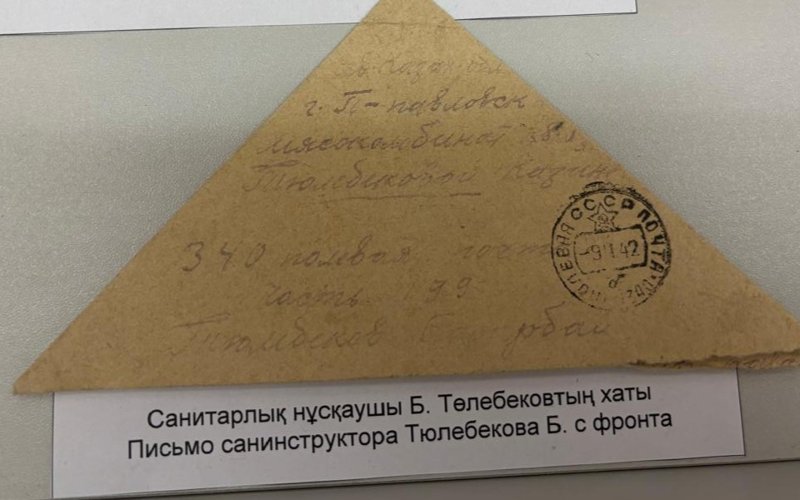 г. П-павловск
мясокомбинат
Тюлебековой
340 полевая почт
часть 99
Тюлебеков
СССР
ПОЛЕВАЯ ПОЧТА
42
Санитарлық нұсқаушы Б. Төлебековтың хаты
Письмо санинструктора Тюлебекова Б. с фронта